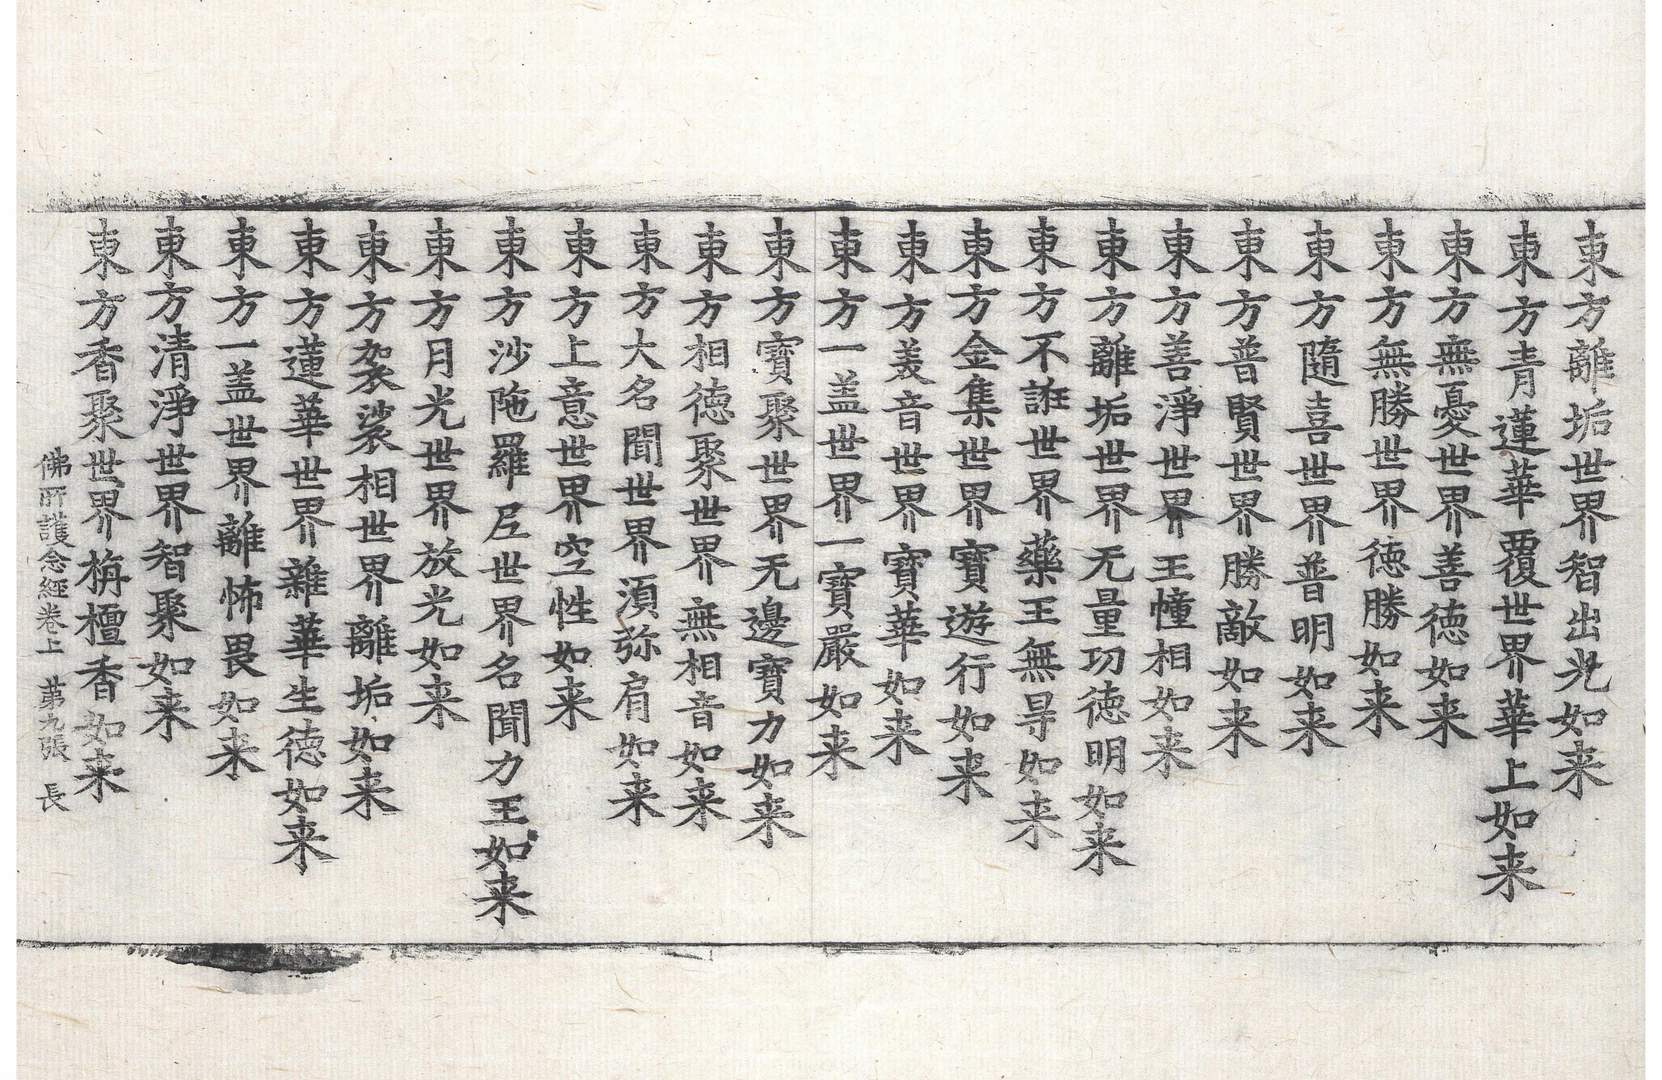 東方離垢世界智出光如来
東方青蓮華覆世界華上如来
東方無憂世界善德如来
東方無勝世界德勝如来
東方隨喜世界普明如来
東方普賢世界勝敵如来
東方善淨世界王幢相如来
東方離垢世界无量功德明如来
東方不誑世界藥王無㝵如来
東方金集世界寶遊行如来
東方美音世界寶華如来
東方一盖世界一寶嚴如来
東方寶聚世界无邊寶力如来
東方相德聚世界無相音如来
東方大名聞世界湏弥肩如来
東方上意世界空性如来
東方沙陁羅尼世界名聞力王如来
東方月光世界放光如来
東方袈裟相世界離垢如来
東方蓮華世界雜華生德如来
東方一盖世界離怖畏如来
東方清淨世界智聚如来
東方香聚世界栴檀香如来
佛所護念經卷上 苐九張 長